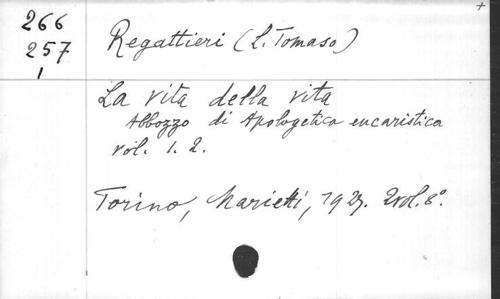 266 Regattieri (L. Tomaso)
257
1
La vita della vita
Abbozzo di Apologetica eucaristica
vol. 1. 2.
Torino, Marietti, 1927. 2 vol. 8°.
+